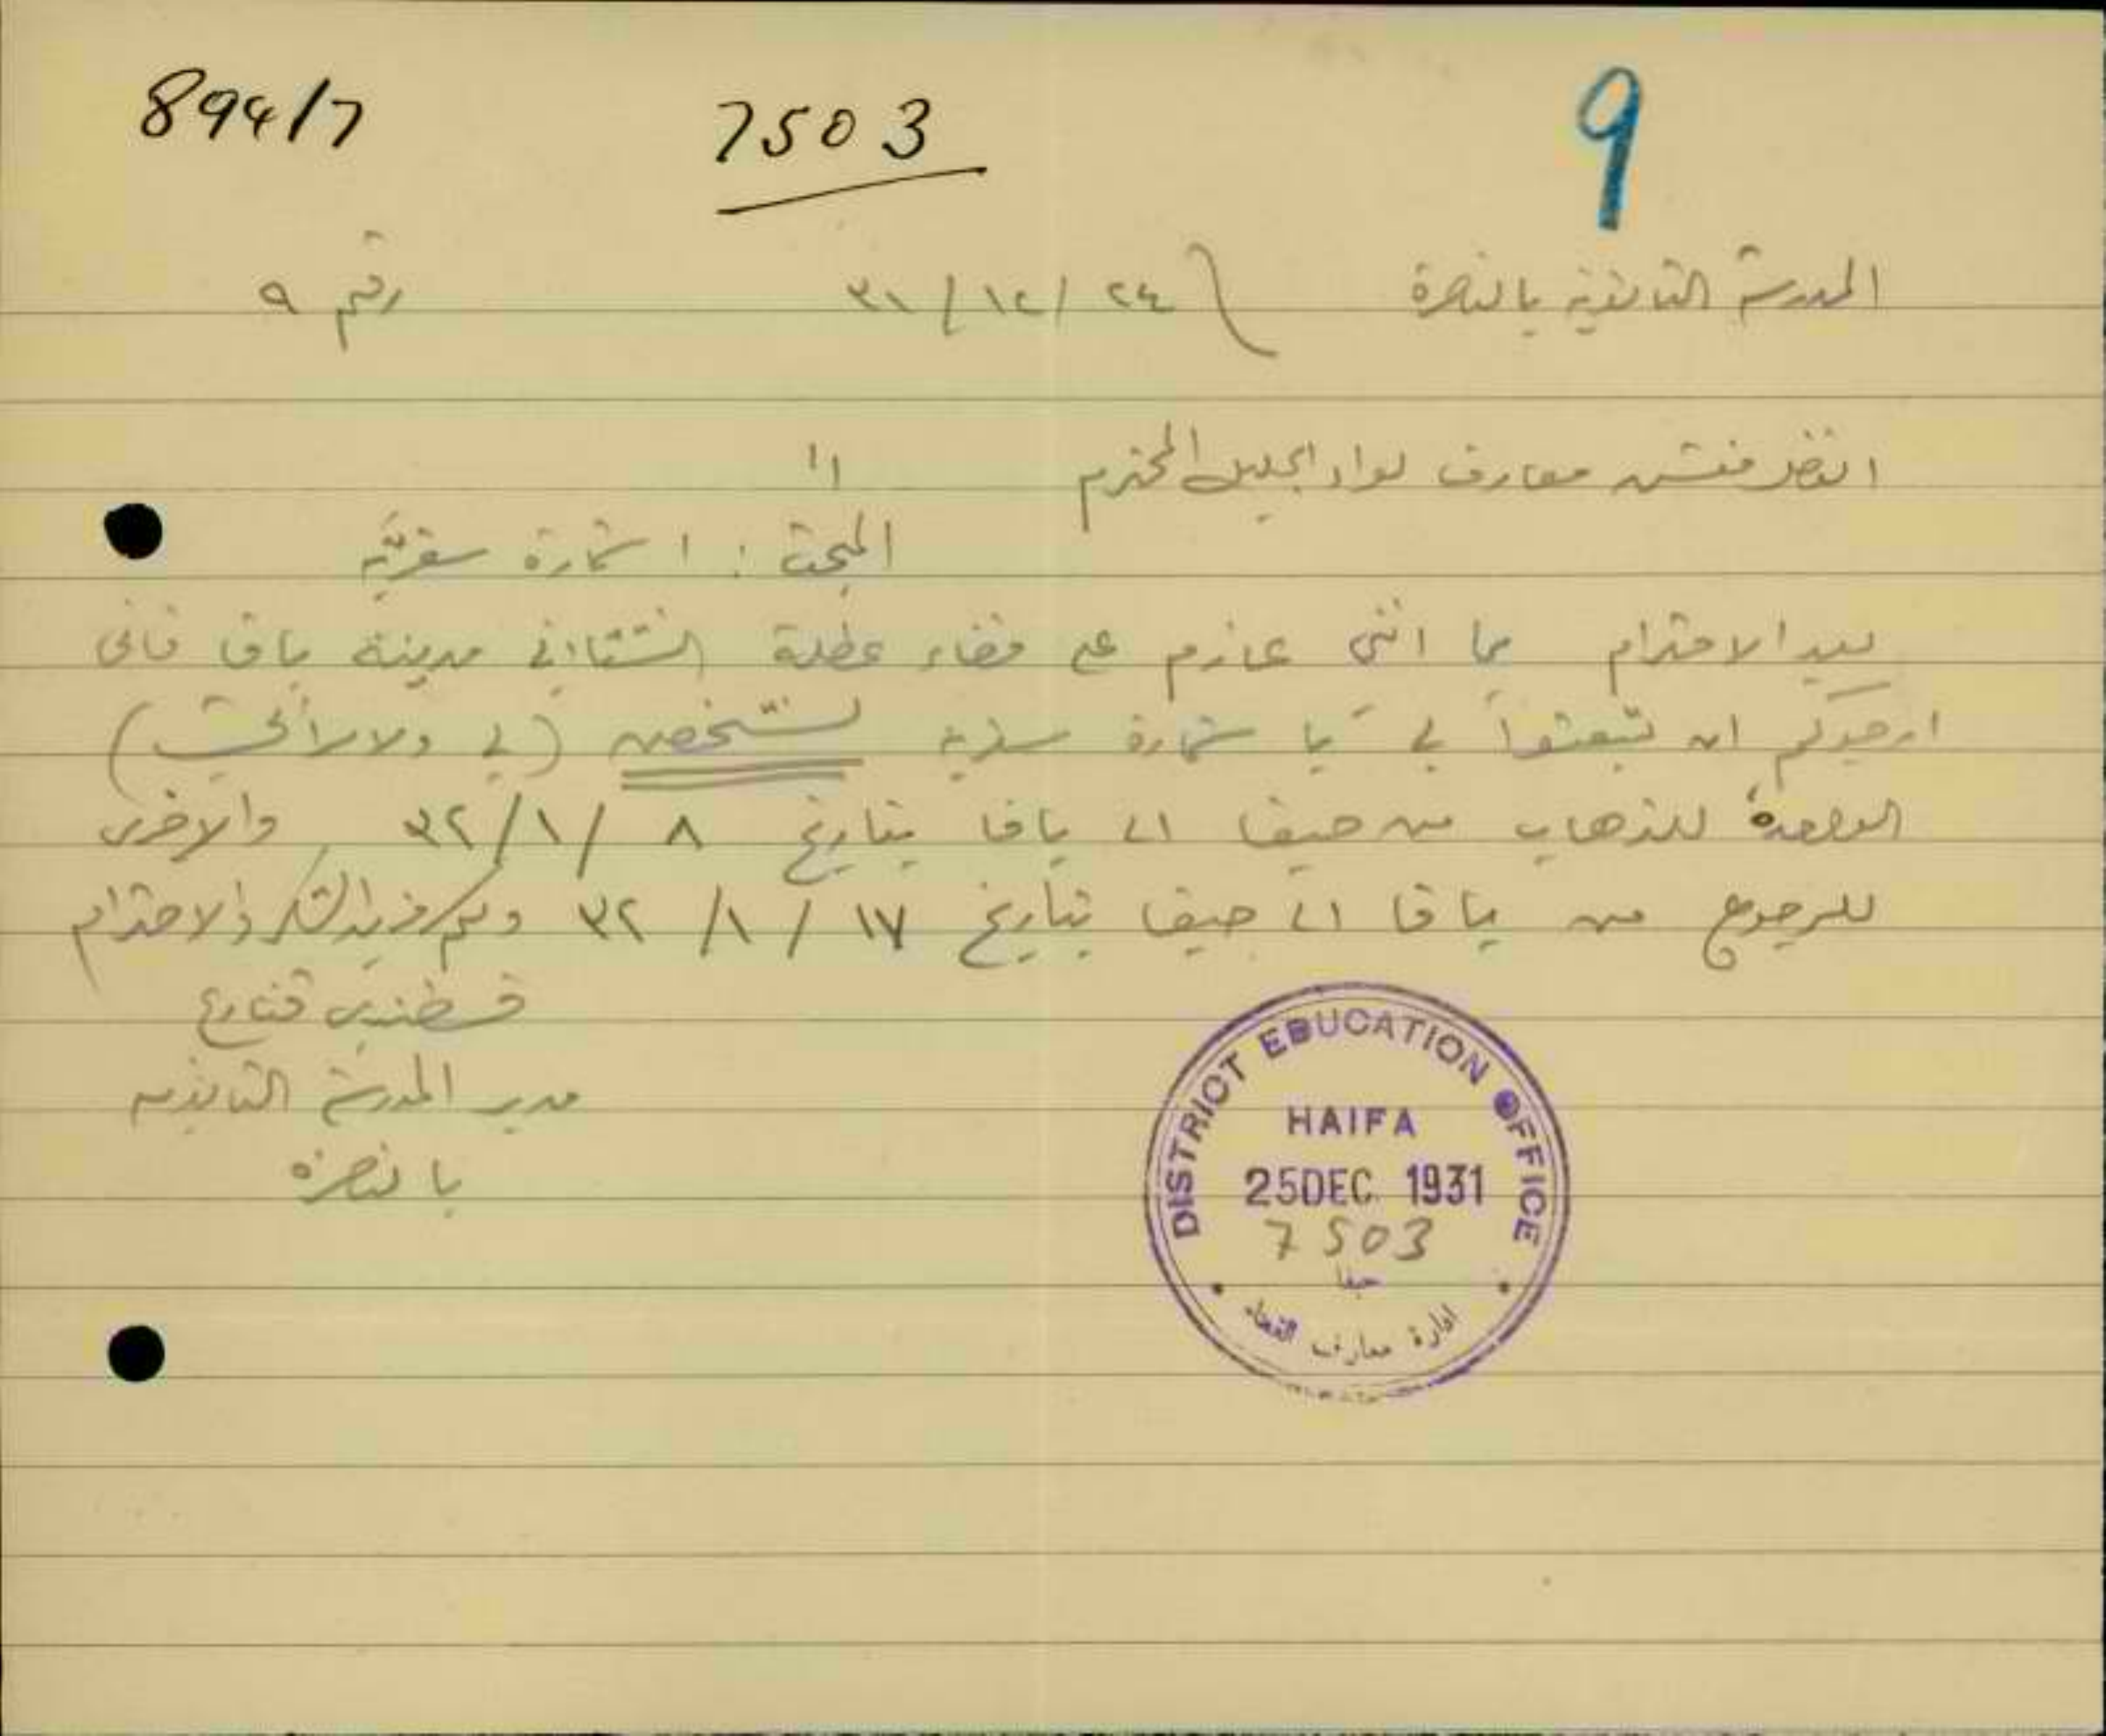 894/7 7503 9
المدرسة الثانوية بالناصرة ٢٤ / ١٢ / ٣١ رقم ٩
مفتش معارف لواء الجليل المحترم
المبحث : استمارة سفرية
بعد الاحترام بما انني عازم على قضاء عطلة الشتاء في مدينة يافا فاني
ارجوكم ان تبعثوا لي باستمارة سفرية لشخصين (لي
الواحدة للذهاب من حيفا الى يافا بتاريخ ٨ / ١ / ٣٢ والاخرى
للرجوع من يافا الى حيفا بتاريخ ١٧ / ١ / ٣٢ ولكم مزيد الشكر والاحترام
قسطندي قنازع
مدير المدرسة الثانوية
بالناصرة
DISTRICT EDUCATION OFFICE
HAIFA
25 DEC. 1931
7503
حيفا
ادارة معارف القضاء